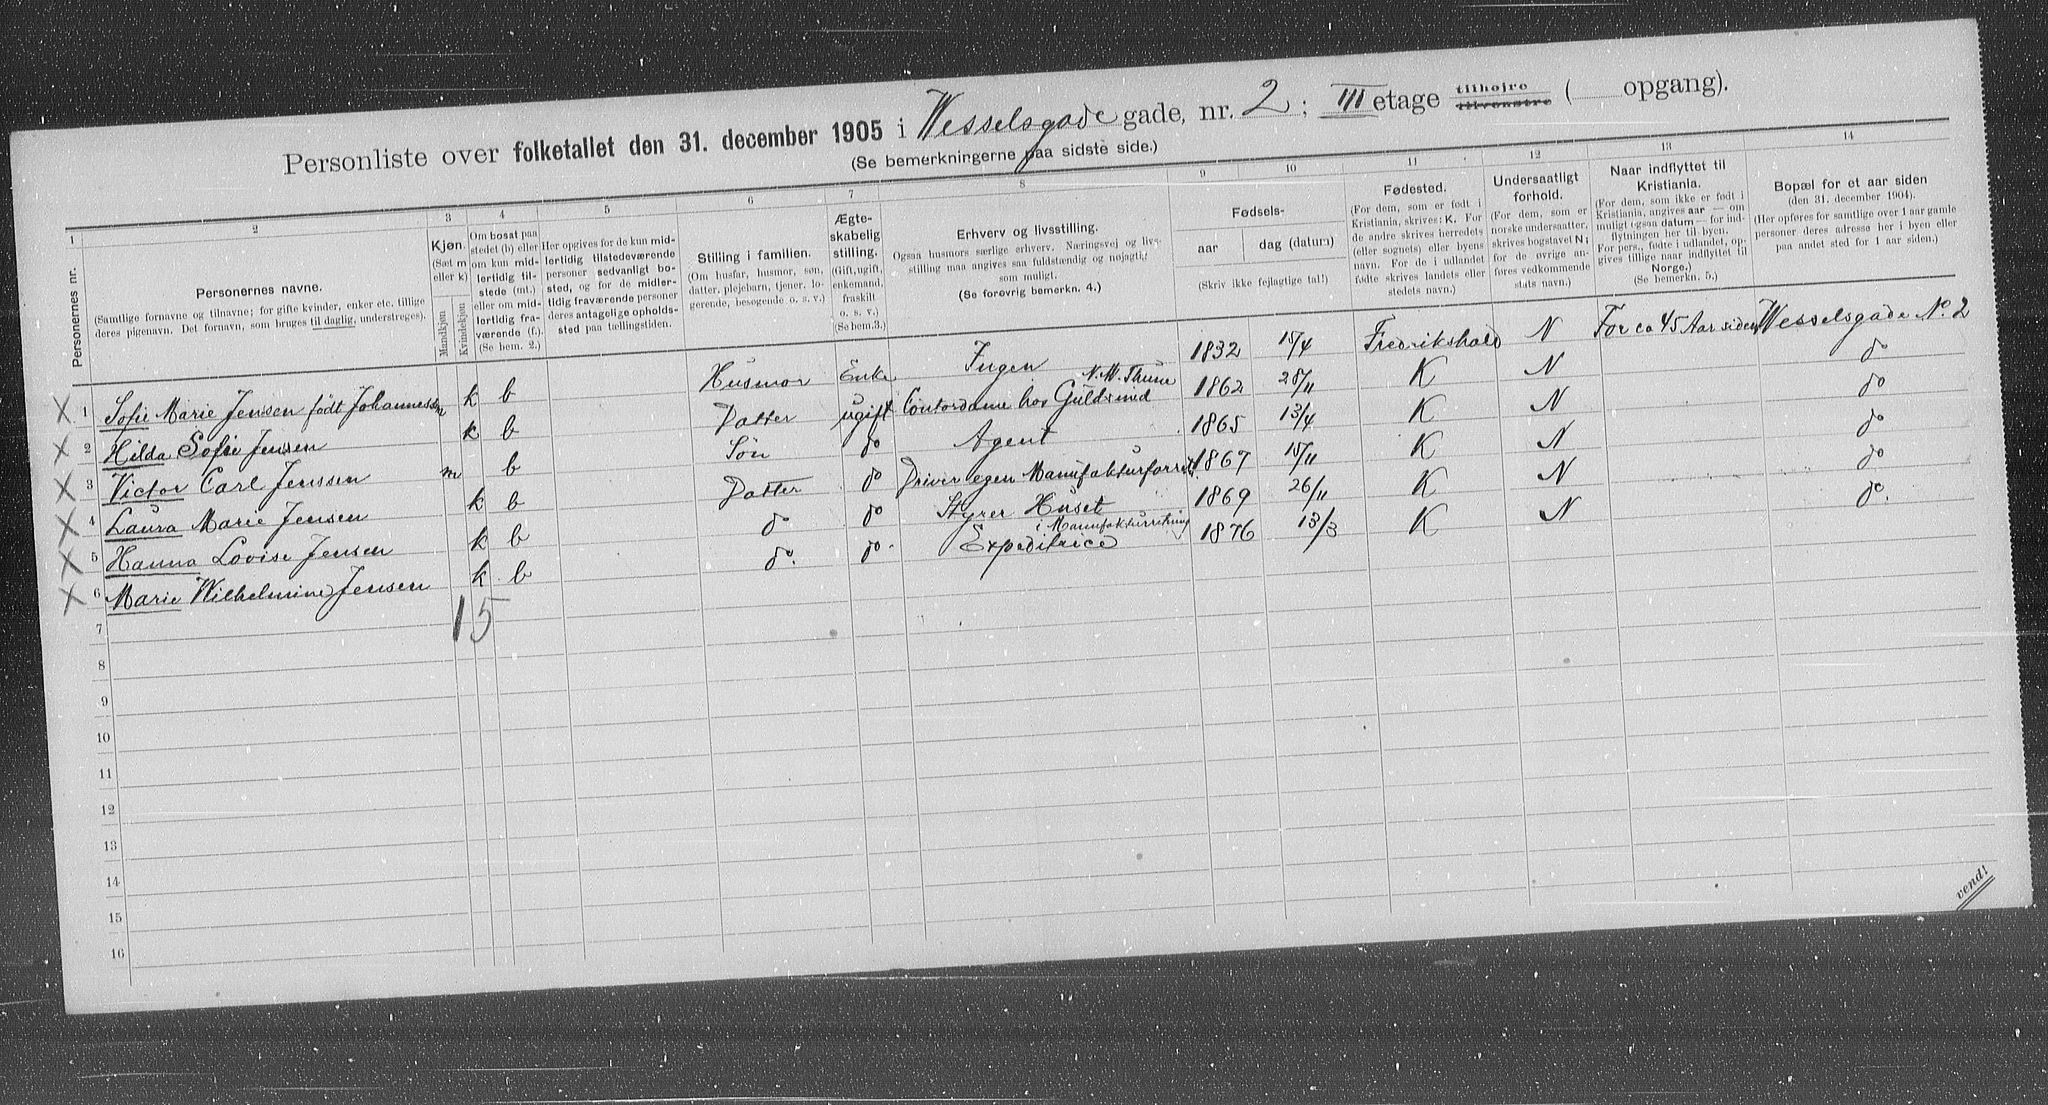 Personliste over folketallet den 31. december 1905 i Wesselsgade gade, nr. 2; III etage tilhøjre tilvenstre ( opgang).
(Se bemerkningerne paa sidste side.)
1 2 3 4 5 6 7 8 9 10 11 12 13 14
Personernes nr.
Personernes navne.
(Samtlige fornavne og tilnavne; for gifte kvinder, enker etc. tillige
deres pigenavn. Det fornavn, som bruges til daglig, understreges).
Kjøn.
(Sæt m
eller k)
Mandkjøn
Kvindekjøn
Om bosat paa
stedet (b) eller
om kun mid-
lertidig til-
stede (mt.)
eller om mid-
lertidig fra-
værende (f.)
(Se bem. 2.)
Her opgives for de kun mid-
lertidig tilstedeværende
personer sedvanligt bo-
sted, og for de midler-
tidig fraværende personer
deres antagelige opholds-
sted paa tællingstiden.
Stilling i familien.
(Om husfar, husmor, søn,
datter, plejebarn, tjener, lo-
gerende, besøgende o. s. v.)
Ægte-
skabelig
stilling.
(Gift, ugift,
enkemand,
fraskilt
o. s. v.)
(Se bem.3.)
Erhverv og livsstilling.
Ogsaa husmors særlige erhverv. Næringsvej og liv-
stilling maa angives saa fuldstændig og nøjagtig
som muligt.
(Se forøvrig bemerkn. 4.)
Fødsels-
aar
dag (datum)
(Skriv ikke fejlagtige tal!)
Fødested.
(For dem, som er født i
Kristiania, skrives: K. For
de andre skrives herredets
(eller sognets) eller byens
navn. For de i udlandet
fødte skrives landets eller
stedets navn.)
Undersaatligt
forhold.
(For dem, som er
norske undersaatter,
skrives bogstavet N;
for de øvrige an-
føres vedkommende
stats navn.)
Naar indflyttet til
Kristiania.
(For dem, som ikke er født i
Kristiania, angives aar — om
muligt ogsaa datum — for ind-
flytningen her til byen.
For pers., fødte i udlandet, op-
gives tillige naar indflyttet til
Norge.)
(Se bemerkn. 5.)
Bopæl for et aar siden
(den 31. december 1904).
(Her opføres for samtlige over 1 aar gamle
personer deres adresse her i byen eller
paa andet sted for 1 aar siden.)
X 1 Sofie Marie Jensen født Johannessen k b Husmor Enke Ingen 1832 15/4 Fredrikshald N For ca 45 Aar siden Wesselsgade No. 2
X 2 Hilda Sofie Jensen k b Datter ugift Contordame hos Guldsmed N. M. Thune 1862 28/11 K N do
X 3 Victor Carl Jenssen m b Søn do Agent 1865 13/4 K N do
X 4 Laura Marie Jensen k b Datter do Driver egen Manufakturforretn. 1867 15/11 K N do
X 5 Hanna Lovise Jensen k b do do Styrer Huset 1869 26/11 K N do
X 6 Marie Wilhelmine Jensen k b do. do. Expeditrice i Manufakturretning 1876 13/3 K N do.
7 1 5
8
9
10
11
12
13
14
15
16
vend!